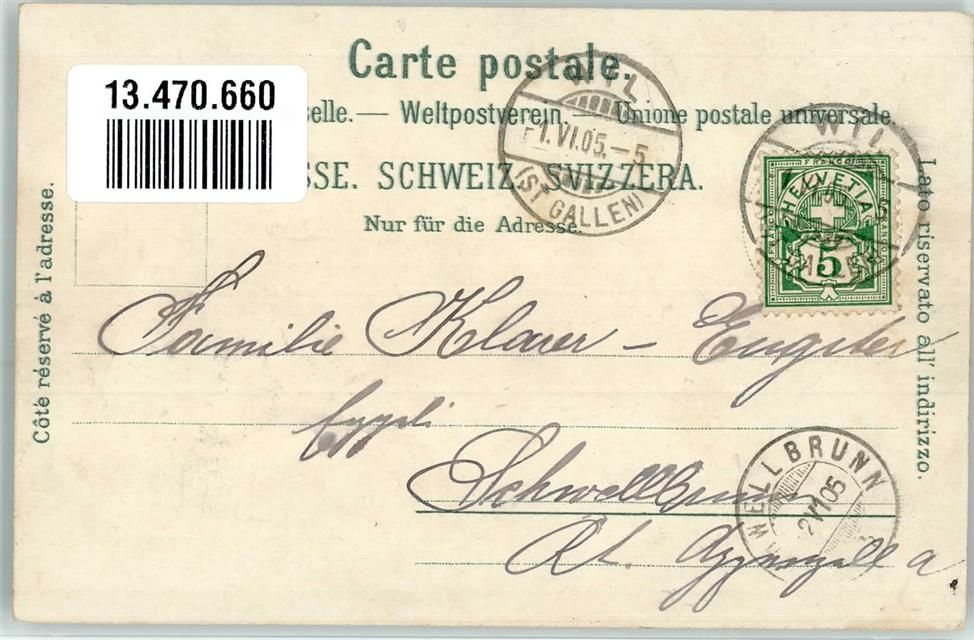 Carte postale.
13.470.660
selle. — Weltpostverein. — Unione postale universale.
SSE. SCHWEIZ. SVIZZERA.
Nur für die Adresse.
Côté réservé à l'adresse.
Lato riservato all' indirizzo.
WIL
1.VI.05.–5
(ST GALLEN)
WIL
FRANCO
HELVETIA
FRANCO
FRANCO
5
Familie Klarer – Engster
Schwellbrunn
Kt. Appenzell a
WELLBRUNN
2 VI 05